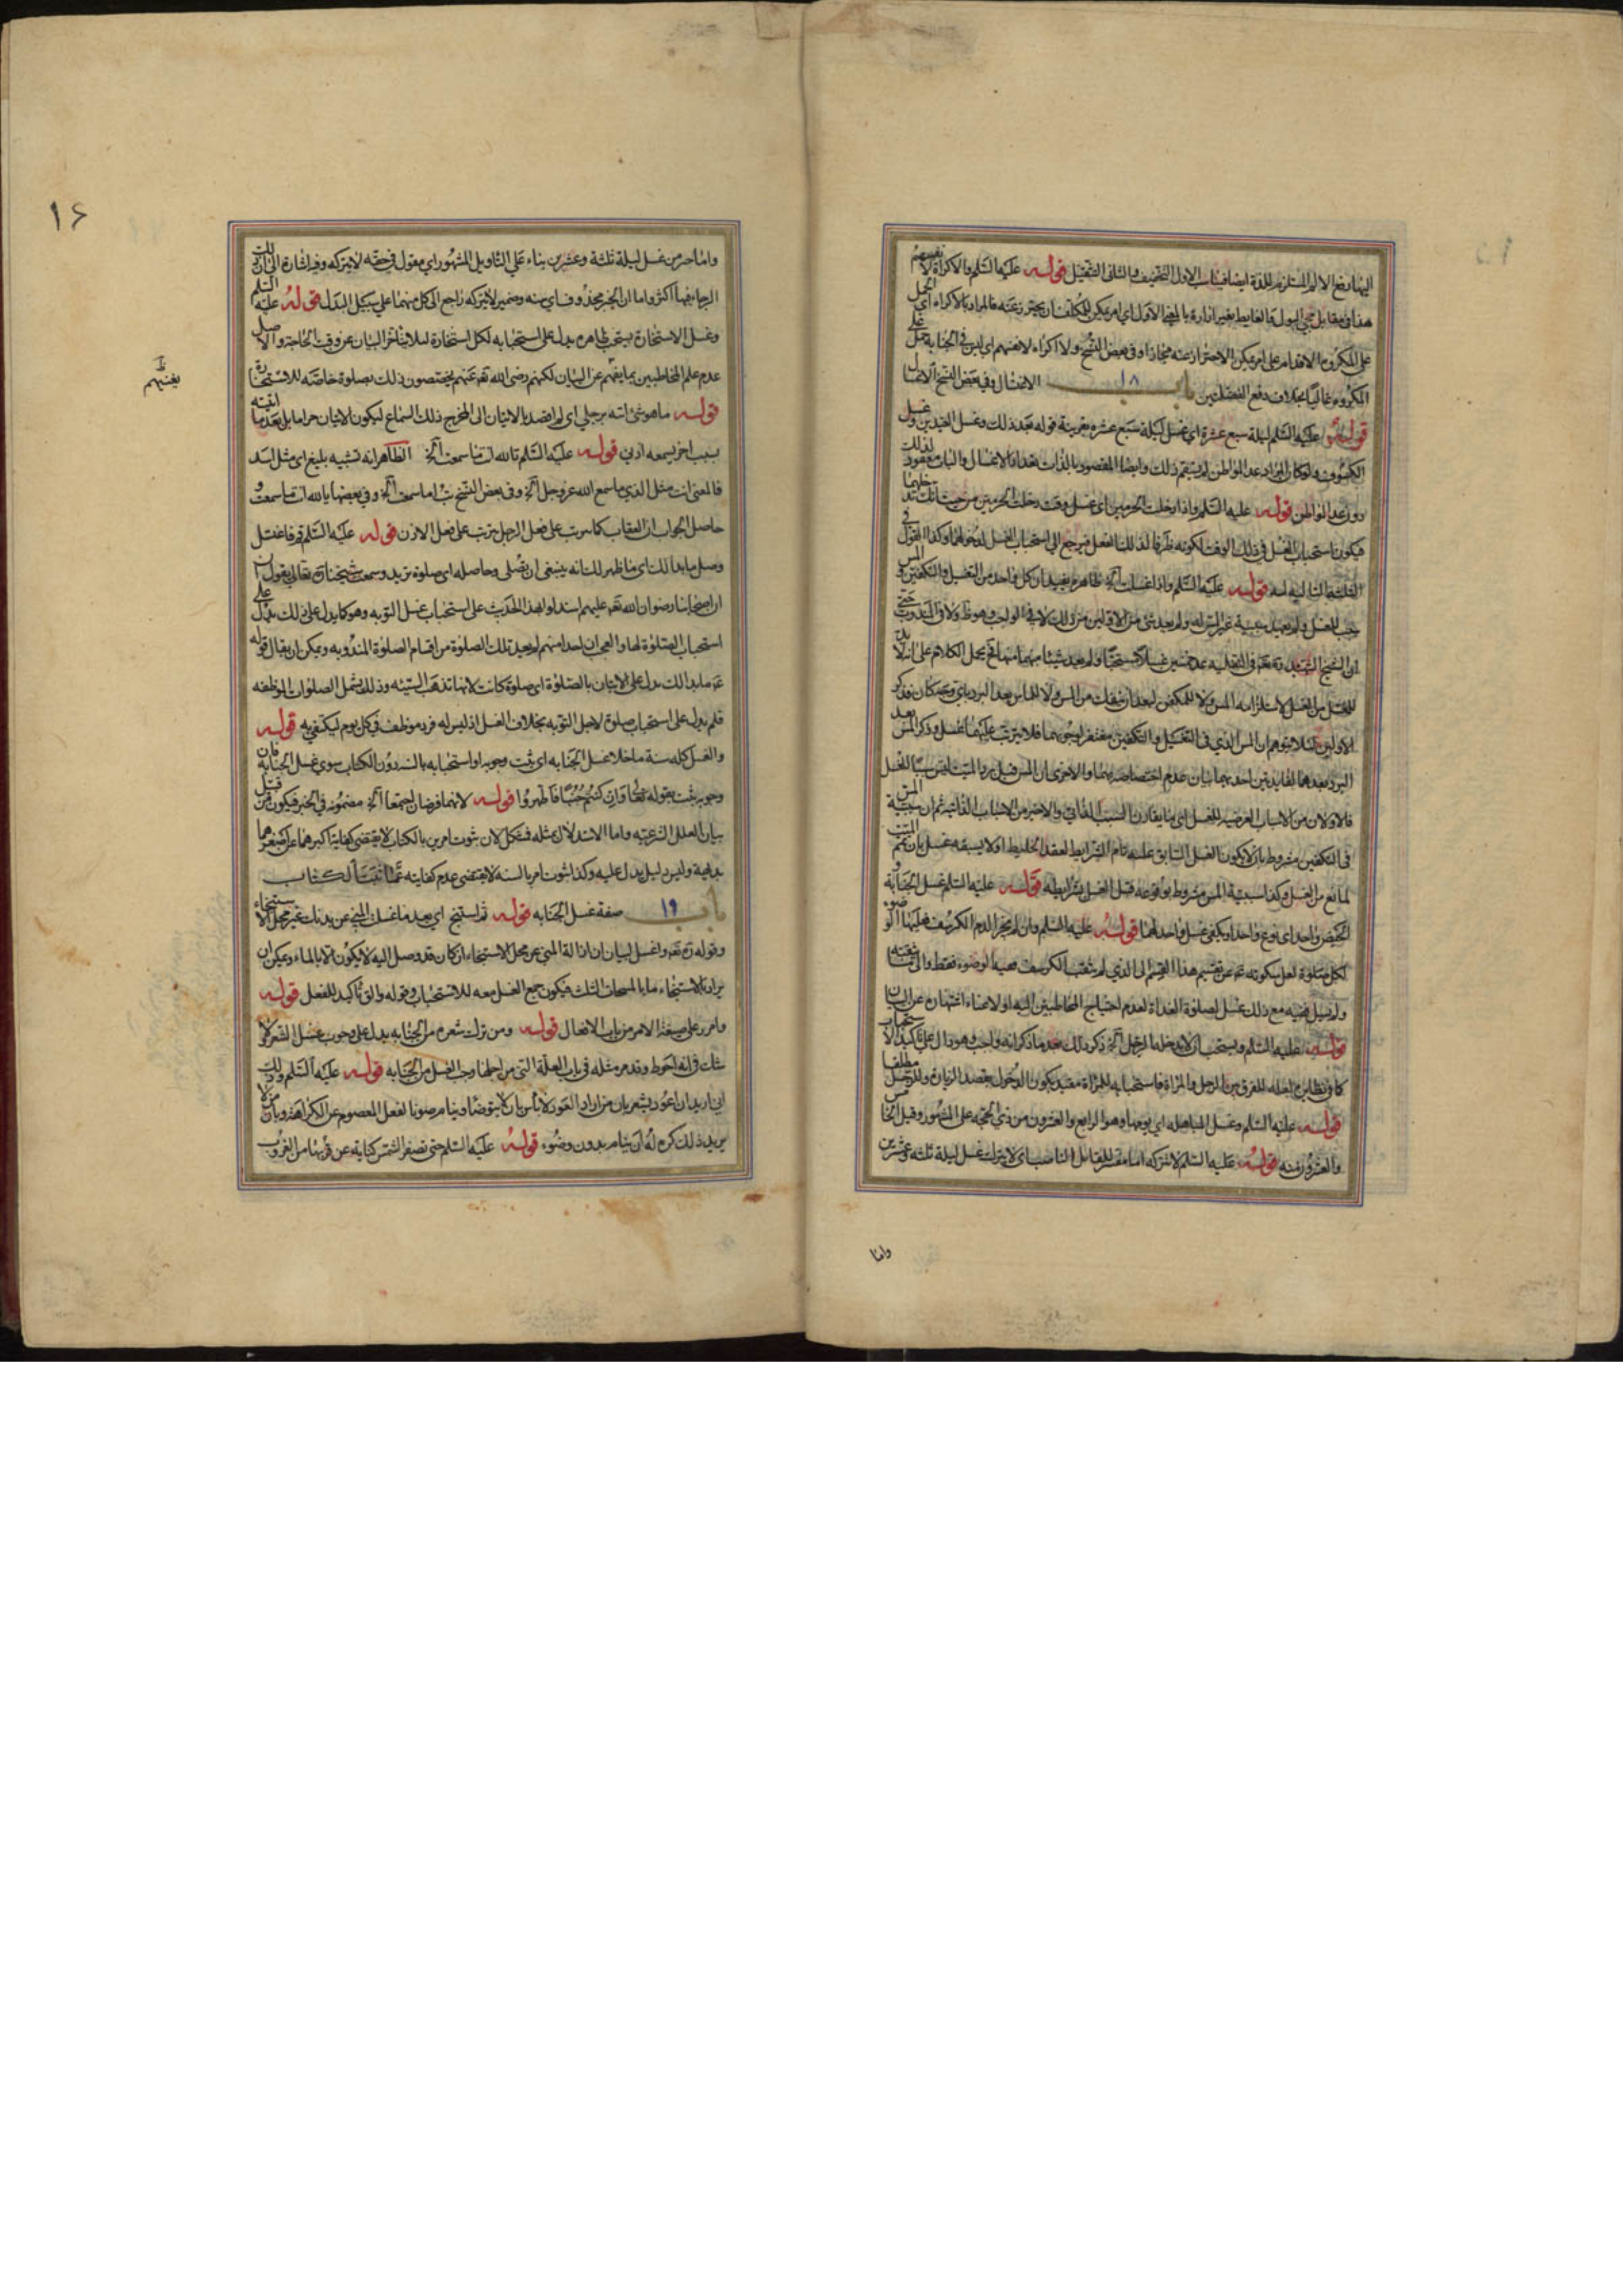 اليها دفع الالم المستلزم للذة ايضا فيناسب الاول التخفيف والثاني التثقيل قوله عليه السلم والاكراه لا نفسهم
هذا في مقابل مجئ البول والغايط بغير ارادة بالمعنى الاول اي امر يمكن للمكلف ان يحترز عنه فالمراد بالاكراه اي الحمل
على المكروه ما الاقدام على امر يمكن الاحتراز عنه مجازا وفي بعض النسخ ولا اكراه لانفسهم اي ليس في الجنابة حمل على
المكروه غالبا بخلاف دفع الفضلتين باب ١٨ الاغسال وفي بعض النسخ الاغتسال
قوله عليه السلم ليلة سبع عشرة اي غسل ليلة سبع عشره بقرينة قوله بعد ذلك وغسل العيدين وغسل
الكسوف ولو كان المراد عد المواطن لم يستقم ذلك وايضا المقصود بالذات تعداد الاغسال والبيان معقود لذلك
دون عد المواطن قوله عليه السلم واذا دخلت الحرمين اي غسل وقت دخلت الحرمين من حيث انك تدخلهما
فيكون استحباب الغسل في ذلك الوقت لكونه ظرفا لذلك الفعل فيرجع الى استحباب الغسل لدخولهما وكذا القول في
الثلثة التالية له قوله عليه السلم واذا غسلت الخ ظاهره يفيد ان كل واحد من التغسيل والتكفين والمس
البرد بعدهما لفايدتين احدهما بيان عدم اختصاصه بهما والاخرى ان المس قبل برد الميت ليس سببا للغسل
فالاولان من الاسباب العرضيه للغسل اي ما يقارن السبب الذاتي والاخير من الاسباب الذاتيه ثم ان سببية المس
في التكفين مشروط بان لا يكون الغسل السابق عليه تام الشرايط لفقد الخليط او لا يسبقه غسل بان يمم الميت
لمانع من الغسل وكذا سببية المس مشروط بوقوعه قبل الغسل بشرايطه قوله عليه السلم غسل الجنابة و
الحيض واحد اي نوع واحد او يكفي غسل واحد لهما قوله عليه السلم وان لم يجز الدم الكرسف فعليها الوضوء
لكل صلوة لعل سكوته عن تقسيم هذا القسم الى الذي لم يثقب الكرسف ففيه الوضوء فقط والى ما يثقبه
ولم يسل ففيه مع ذلك غسل لصلوة الغداة لعدم احتياج المخاطبين اليه او لاغناء اشتهاره عن البيان
قوله عليه السلم ويستحب ان لا يدخله الرجل الخ ذكر ذلك بعد ما ذكر انه واجب وهو دال على تاكيد الاستحباب
كما في نظايره لعله للفرق بين الرجل والمراة فاستحبابه للمراة مقيد بكون الدخول بقصد الزيارة وللرجل مطلقا
قوله عليه السلم وغسل المباهله اي يومها وهو الرابع والعشرون من ذي الحجه على المشهور وقيل الخامس
والعشرون منه قوله عليه السلم لا تتركه اما مفسر للقائل الناصب اي لا يترك غسل ليلة ثلثه وعشرين
واما
١٦
واما خبر من غسل ليلة ثلثة وعشرين بناء على التاويل المشهور اي مقول في حقه لا يتركه وفيه اشارة الى ان ذلك
الرجا فيها اكثر واما ان الخبر محذوف اي سنه وضمير لا يتركه راجع الى كل منهما على سبيل البدل قوله عليه السلم
وغسل الاستخارة يستحب ظاهره يدل على استحبابه لكل استخارة لئلا يتاخر البيان عن وقت الحاجة والاصل
عدم علم المخاطبين بما يغنيهم عن البيان لكنهم رضي الله تع عنهم يخصصون ذلك بصلوة خاصة للاستخارة
قوله ما هو شئ اتيته برجلي اي لم اقصد بالاتيان الى المخرج ذلك السماع ليكون الاتيان حراما بل بعد ما اتيته
بسبب اخر ليسمعه اذني قوله عليه السلم تالله انت ما سمعت الخ الظاهر انه تشبيه بليغ اي مثل اسد
فالمعنى انت مثل الذي ما سمع الله عز وجل الخ وفي بعض النسخ بت اما سمعت الخ وفي بعضها يا لله انت ما سمعت و
حاصل الجواب ان العقاب كما يترتب على فعل الرجل يترتب على فعل الاذن قوله عليه السلم قم فاغتسل
وصل ما بدا لك اي ما ظهر لك انه ينبغي ان تصلى وحاصله اي صلوة تريد وسمعت شيخنا ره تعالى يقول ان
اصحابنا رضوان الله تع عليهم استدلوا بهذا الحديث على استحباب غسل التوبه وهو كما يدل على ذلك يدل على
استحباب الصلوة لها والعجب ان احدا منهم لم يعد تلك الصلوة من اقسام الصلوة المندوبه ويمكن ان يقال قوله
عم ما بدا لك يدل على الاتيان بالصلوة اي صلوة كانت لانها تذهب السيئه وذلك يشمل الصلوات الموظفه
فلم يدل على استحباب صلوة لاجل التوبه بخلاف الغسل اذ ليس له فرد موظف في كل يوم ليكتفي به قوله
والغسل كله سنة ما خلا غسل الجنابه اي ثبت وجوبه او استحبابه بالسنه دون الكتاب سوى غسل الجنابة فان
وجوبه يثبت بقوله تعالى وان كنتم جنبا فاطهروا قوله لانهما فرضان اجتمعا الخ مضمونه في الخبر فيكون من قبيل
بيان العلل الشرعيه واما الاستدلال بمثله فمشكل لان ثبوت امرين بالكتاب لا يقتضى كفاية اكبرهما عن اصغرهما
بديهية وليس دليل يدل عليه وكذا ثبوت امر بالسنه لا يقتضى عدم كفايته عما ثبت بالكتاب
باب ١٩ صفة غسل الجنابه قوله ثم استنج اي بعد ما غسلت المني عن بدنك غير محل الاستنجاء
وقوله ره تع واغسل لبيان ان ازالة المني عن محل الاستنجاء ان كان قد وصل اليه لا يكون الا بالماء ويمكن ان
يراد بالاستنجاء ما بالمسحات الثلث فيكون جمع الغسل معه للاستحباب وقوله والق تاكيد للفعل قوله
وامرر على صيغة الامر من باب الافعال قوله ومن ترك شعرة من الجنابه يدل على وجوب غسل الشعر ولا
شك في انه احوط وقد مر مثله في باب العلة التي من اجلها وجب الغسل من الجنابه قوله عليه السلم وذلك
اني اريد ان اعود يشعر بان من اراد العود لا باس بان لا يتوضا وينام صونا لفعل المعصوم عن الكراهة وبان من لا
يريد ذلك كره له ان ينام بدون وضوء قوله عليه السلم حتى تصفر الشمس كناية عن قربها من الغروب
يغنيهم